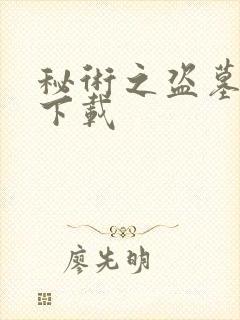 秘術之盜墓
下載
廖先明